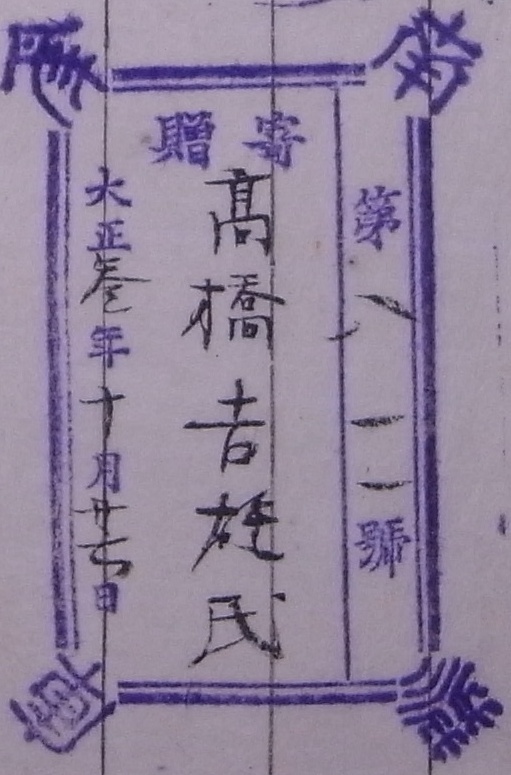 第八一一號
寄贈
高橋吉雄氏
大正参年十月廿六日